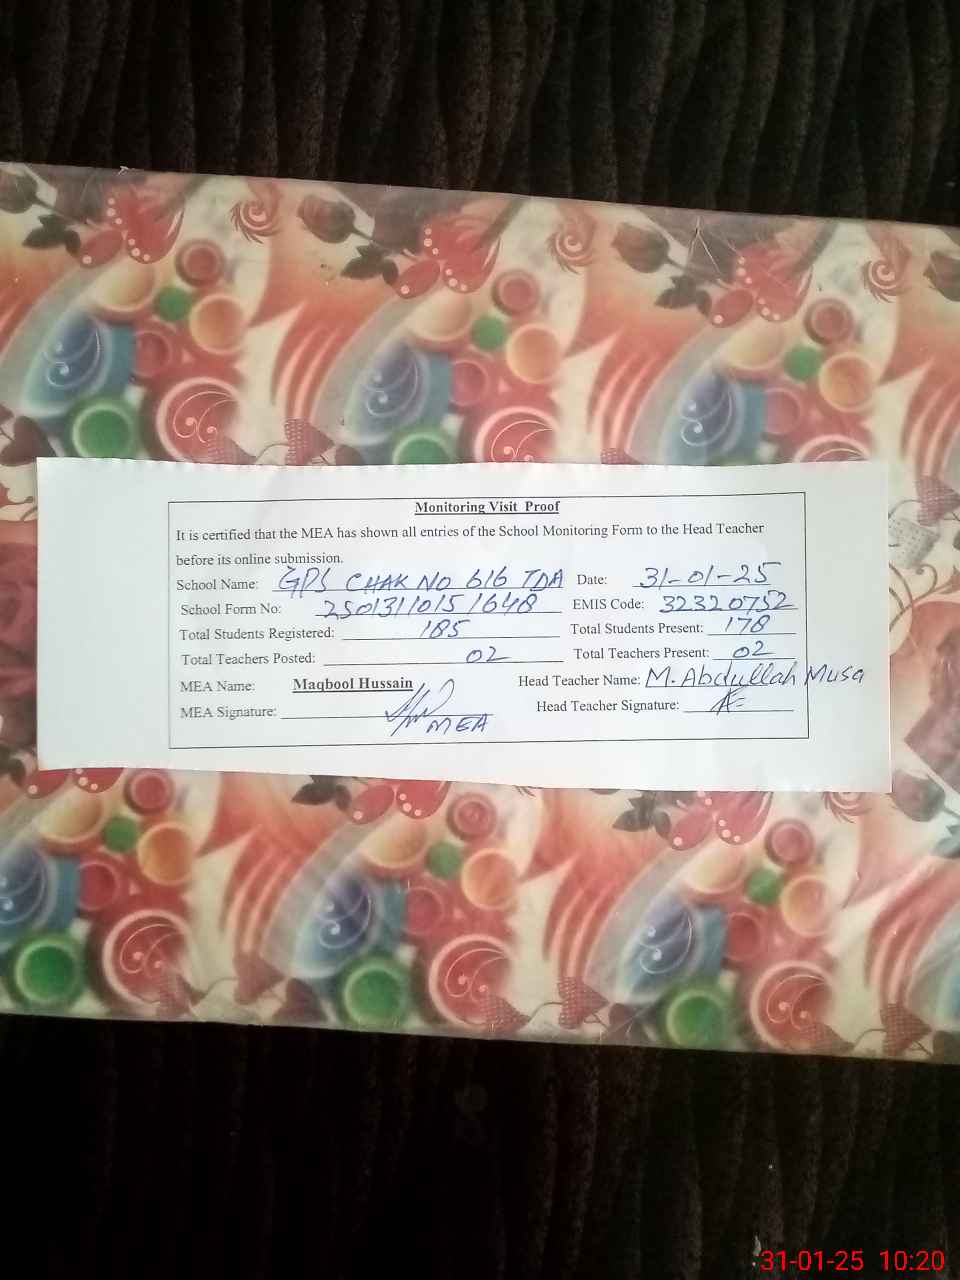 Monitoring Visit Proof
It is certified that the MEA has shown all entries of the School Monitoring Form to the Head Teacher
before its online submission.
School Name: GPS CHAK NO 616 TDA Date: 31-01-25
School Form No: 25013110151648 EMIS Code: 32320752
Total Students Registered: 185 Total Students Present: 178
Total Teachers Posted: 02 Total Teachers Present: 02
MEA Name: Maqbool Hussain Head Teacher Name: M. Abdullah Musa
MEA Signature: MEA Head Teacher Signature:
31-01-25 10:20